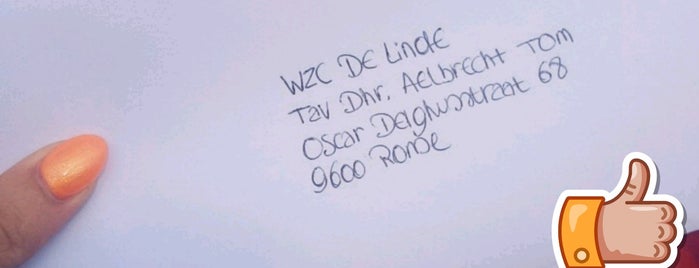 WZC DE LindE
Tav Dhr. AElbrecht Tom
Oscar Delghusstraat 68
9600 Ronse